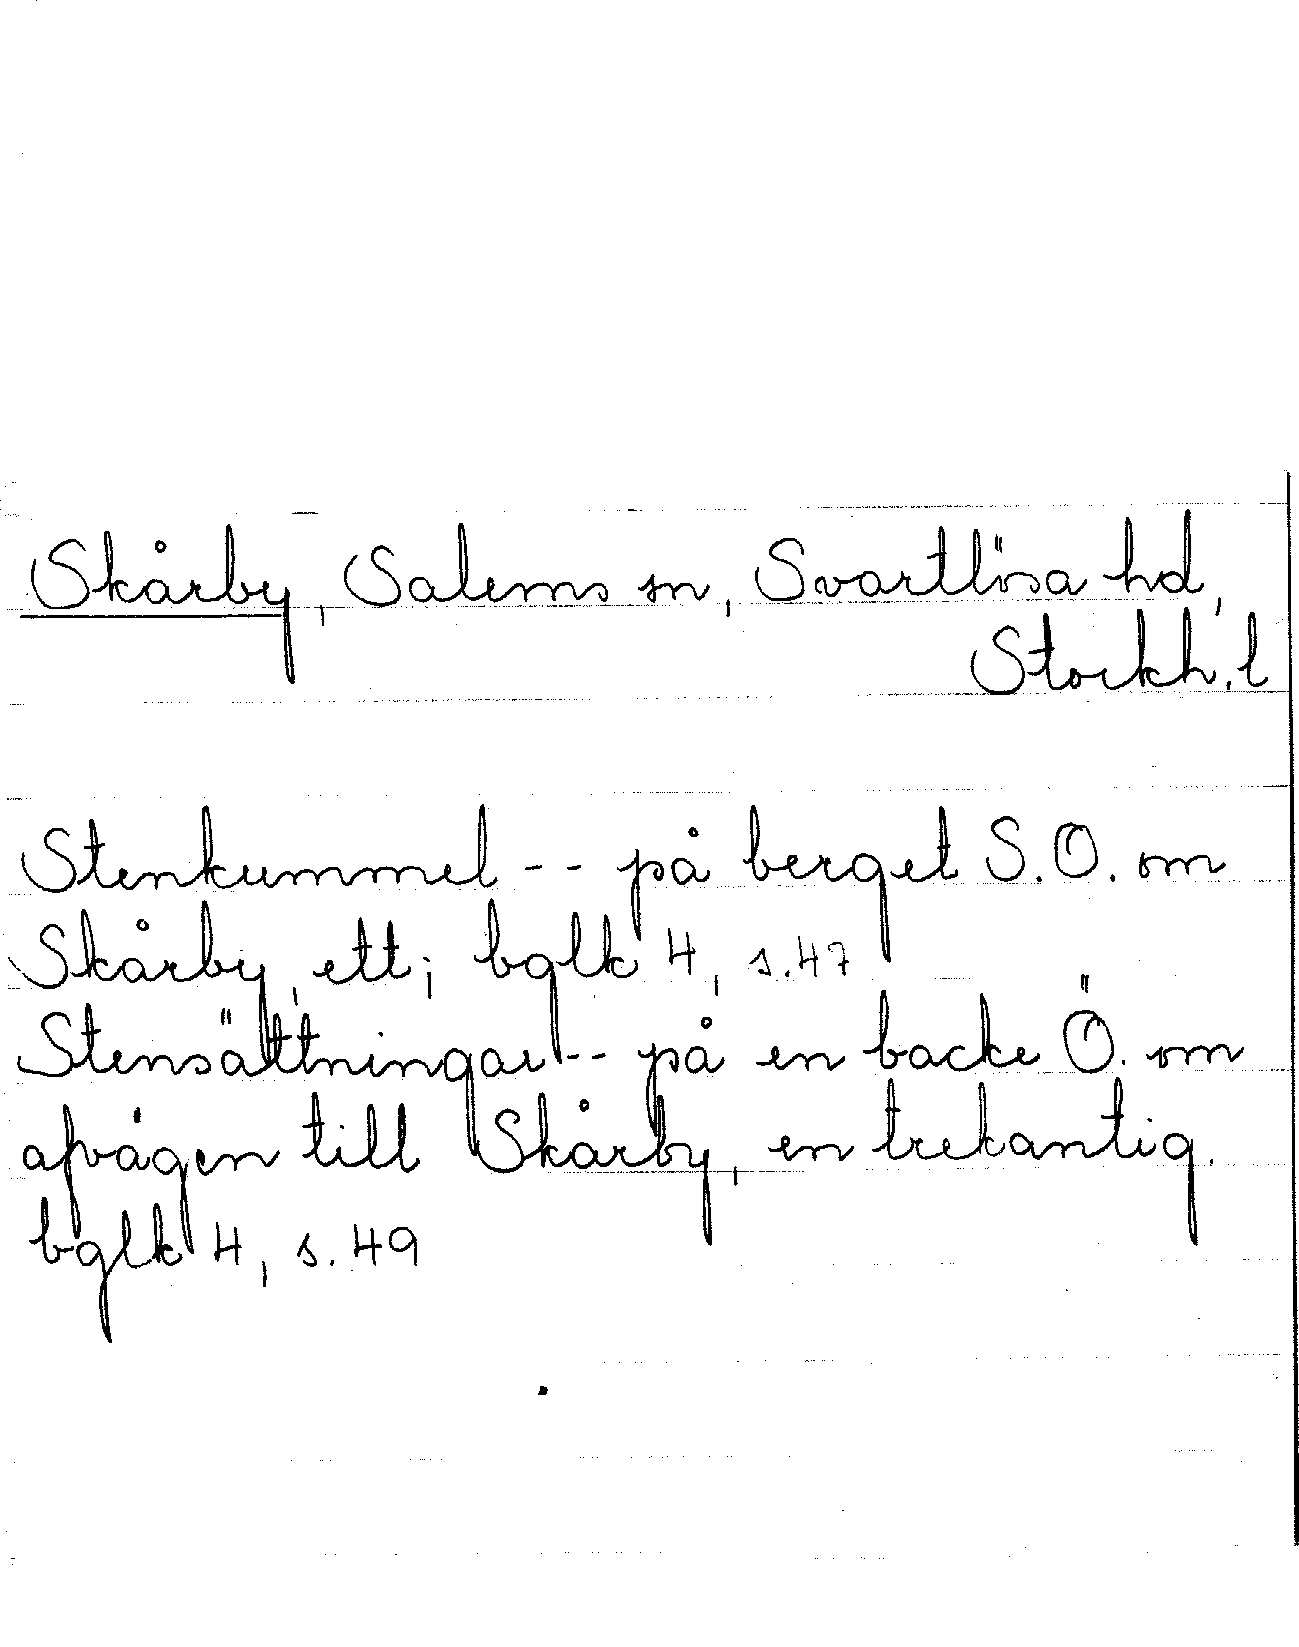 Skårby, Salems sn, Svartlösa hd,
Stockh. l
Stenkummel -- på berget S.O. om
Skårby, ett; bglk 4, s. 47
Stensättningar -- på en backe Ö. om
afvägen till Skårby, en trekantig.
bglk 4, s. 49